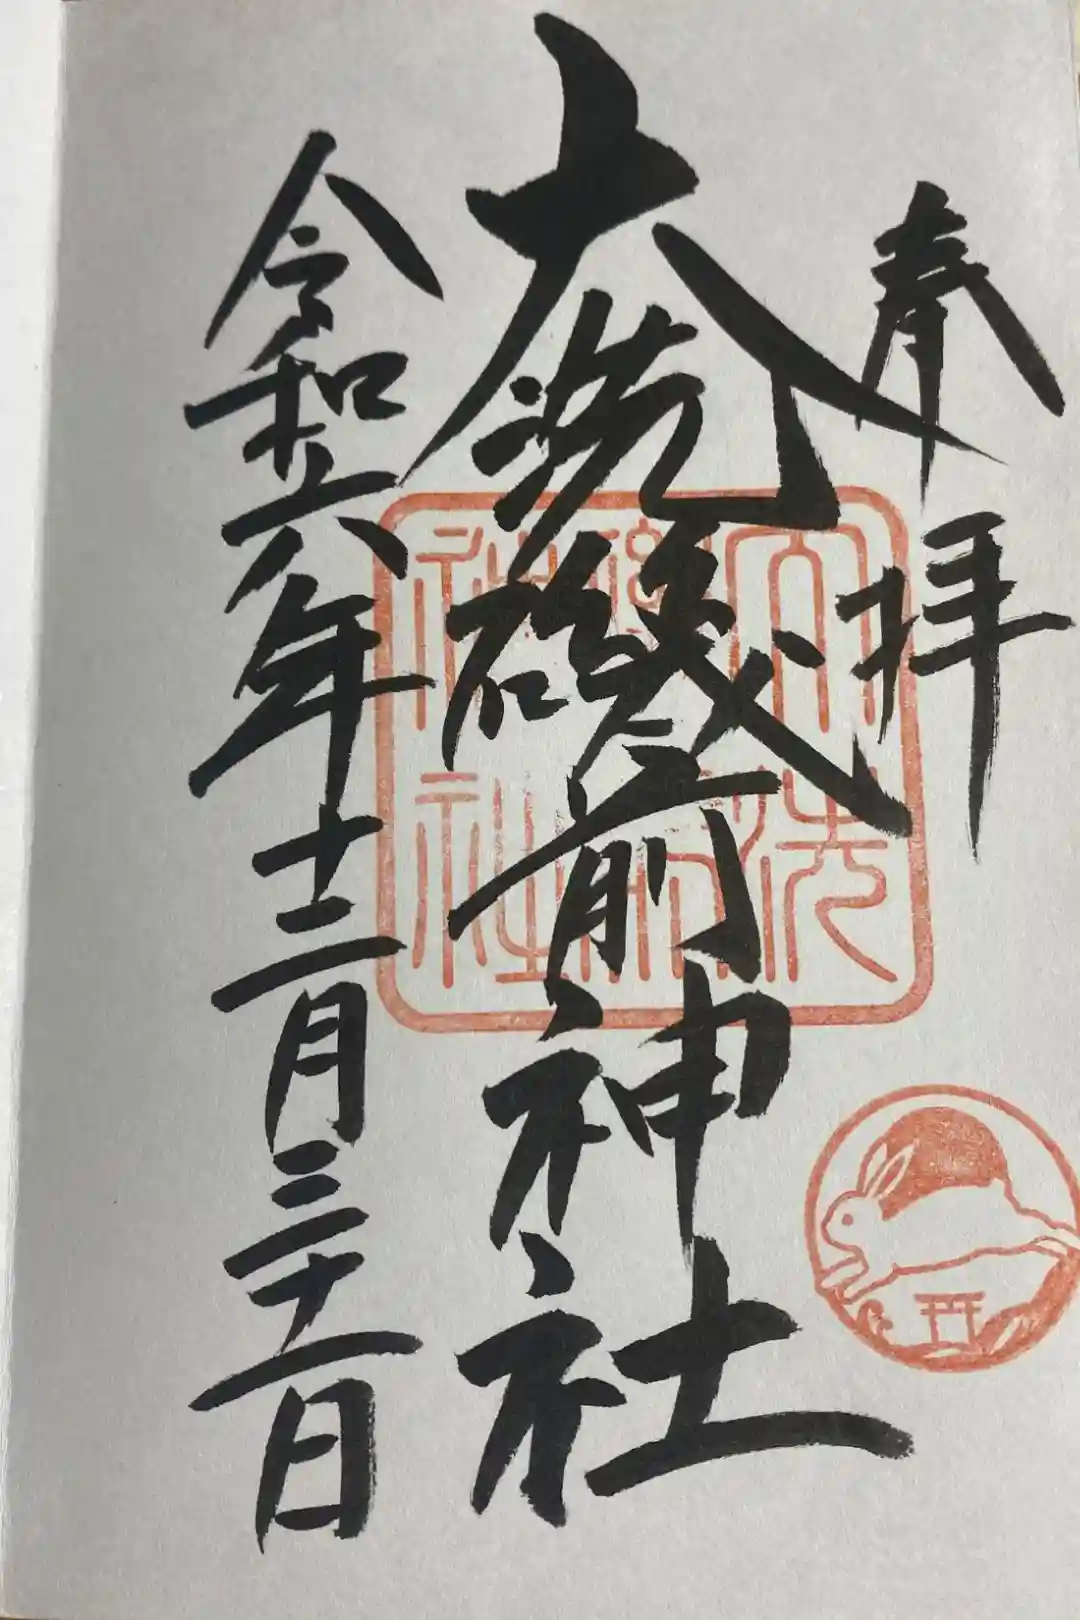 奉拝
大洗磯前神社
令和六年十二月三十一日
大洗
磯前
神社